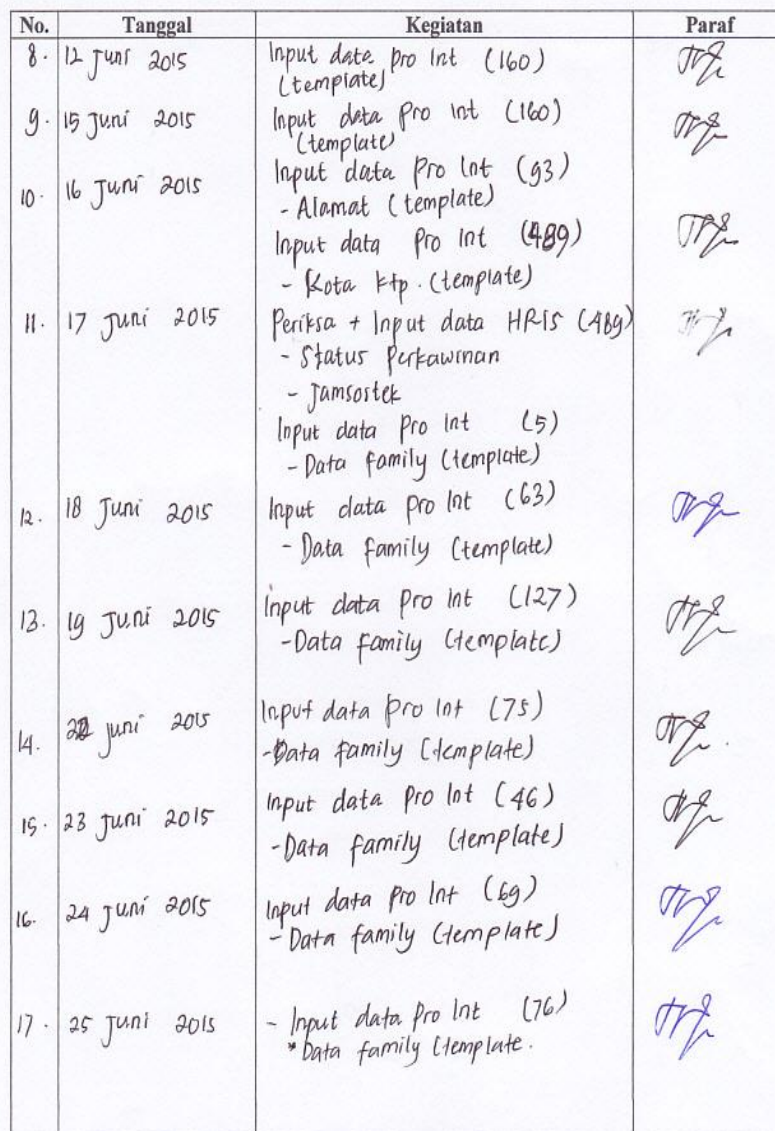 No. Tanggal Kegiatan Paraf
8. 12 Juni 2015 Input data pro Int (160)
(template)
9. 15 Juni 2015 Input data pro Int (160)
(template)
10. 16 Juni 2015 Input data pro Int (93)
- Alamat (template)
Input data pro Int (489)
- Kota ktp. (template)
11. 17 Juni 2015 Periksa + Input data HRIS (489)
- Status Perkawinan
- Jamsostek
Input data pro Int (5)
- Data family (template)
12. 18 Juni 2015 Input data pro Int (63)
- Data family (template)
13. 19 Juni 2015 Input data pro Int (127)
- Data family (template)
14. 22 juni 2015 Input data pro Int (75)
- Data family (template)
15. 23 Juni 2015 Input data pro Int (46)
- Data family (template)
16. 24 Juni 2015 Input data pro Int (69)
- Data family (template)
17. 25 Juni 2015 - Input data pro Int (76)
* Data family (template.